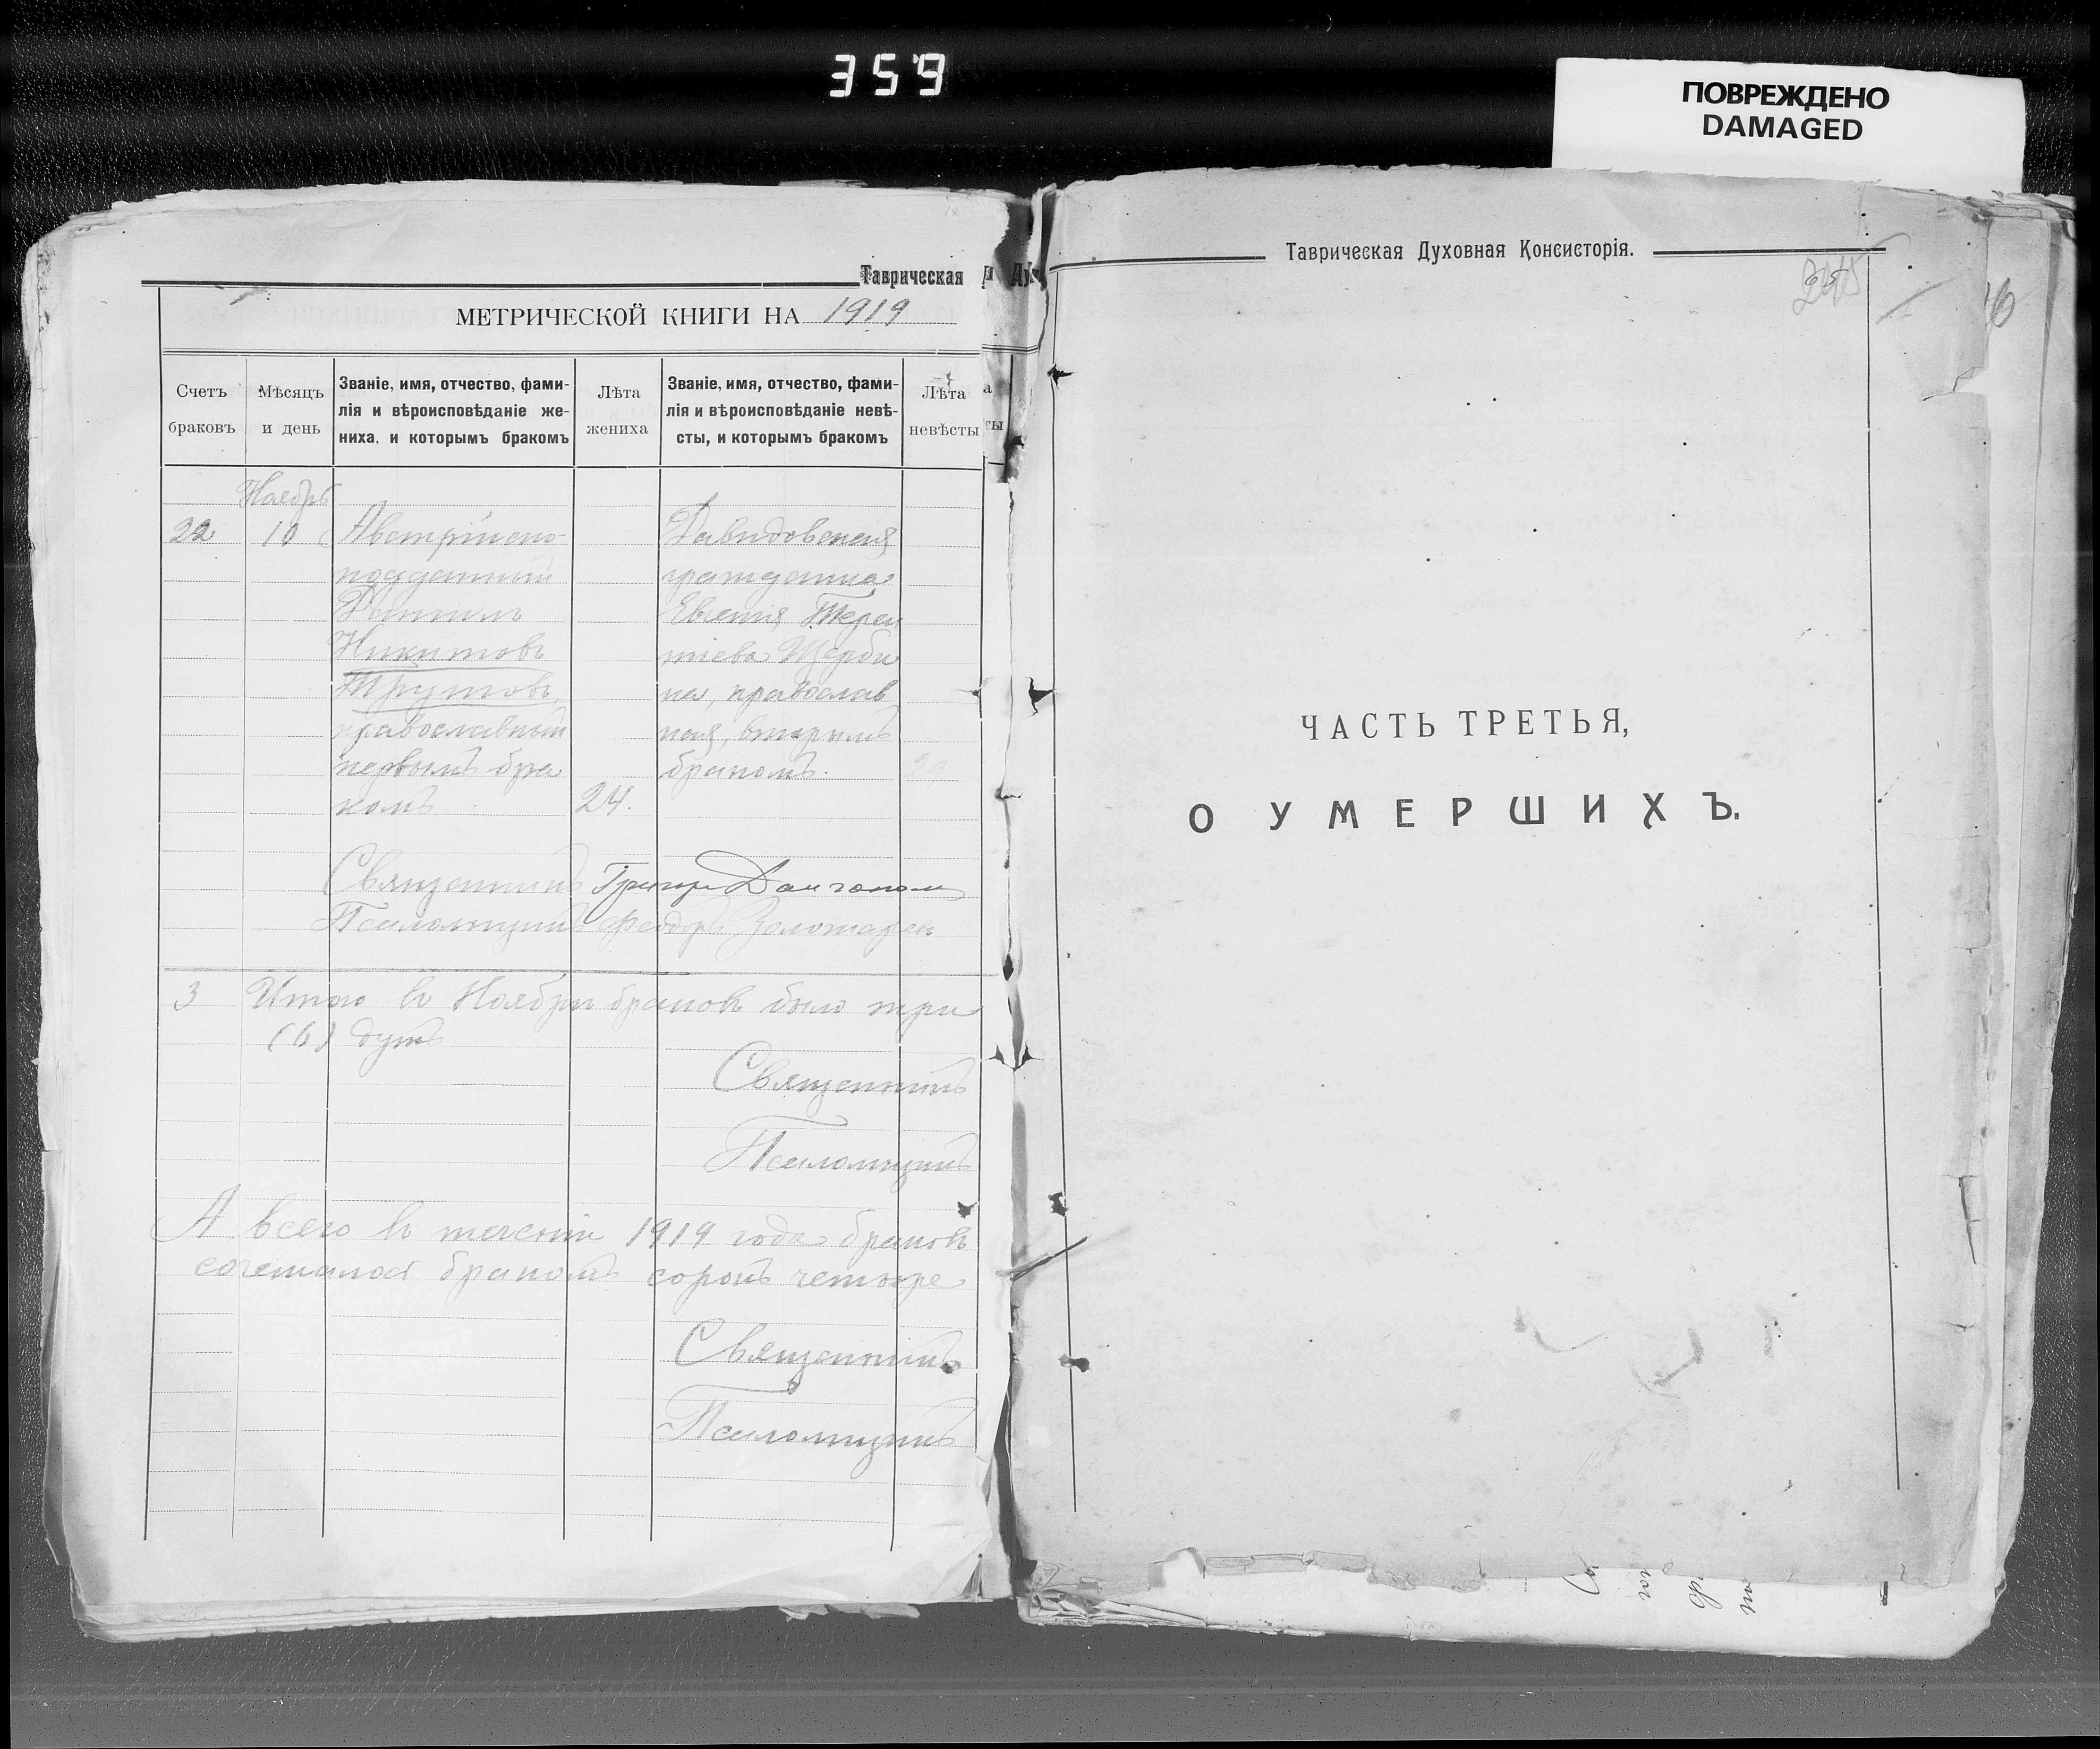 359
ПОВРЕЖДЕНО
DAMAGED
Таврическая
МЕТРИЧЕСКОЙ КНИГИ НА 1919
Счетъ браковъ
Мѣсяцъ и день
Званіе, имя, отчество, фами-
лія и вѣроисповѣданіе же-
ниха, и которымъ бракомъ
Лѣта жениха
Званіе, имя, отчество, фами-
лія и вѣроисповѣданіе невѣ-
сты, и которымъ бракомъ
Лѣта невѣсты
Ноябрь
22
10
Австрійско-
подданный
Никитовъ
православный
первымъ бра
комъ
24.
Давидовская
гражданка
Евгенія Терен
тіева Щерби
на, православ
ная, вторымъ
бракомъ.
Священникъ
Псаломщикъ Феодоръ Золотарев
3 Итого въ Ноябрѣ браковъ было три
(6) душъ
Священникъ
Псаломщикъ
А всего въ теченіи 1919 года браковъ
сочеталось бракомъ сорокъ четыре
Священникъ
Псаломщикъ
Таврическая Духовная Консисторія.
ЧАСТЬ ТРЕТЬЯ,
О УМЕРШИХЪ.